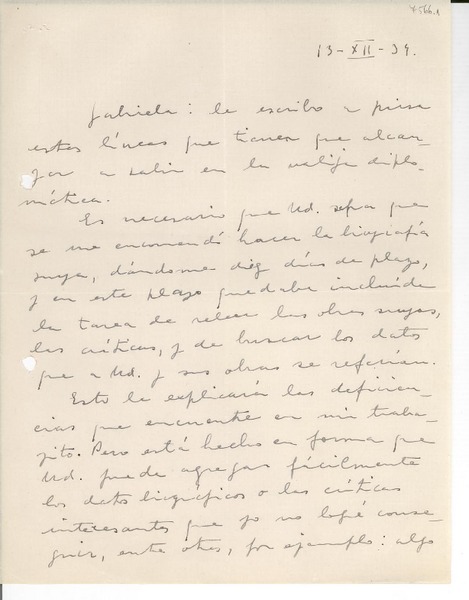 13-XII-39.
Gabriela: le escribo a prisa
estas líneas que tienen que alcan-
zar a salir en la valija diplo-
mática.
Es necesario que Ud. sepa que
se me encomendó hacer la biografía
suya, dándome diez días de plazo,
y en este plazo quedaba incluída
la tarea de releer las obras suyas,
las críticas, y de buscar los datos
que a Ud. y sus obras se referían.
Esto le explicará las deficien-
cias que encuentre en mi traba-
jito. Pero está hecho en forma que
Ud. puede agregar fácilmente
los datos biográficos o las críticas
interesantes que yo no logré conse-
guir, entre otras, por ejemplo: algo